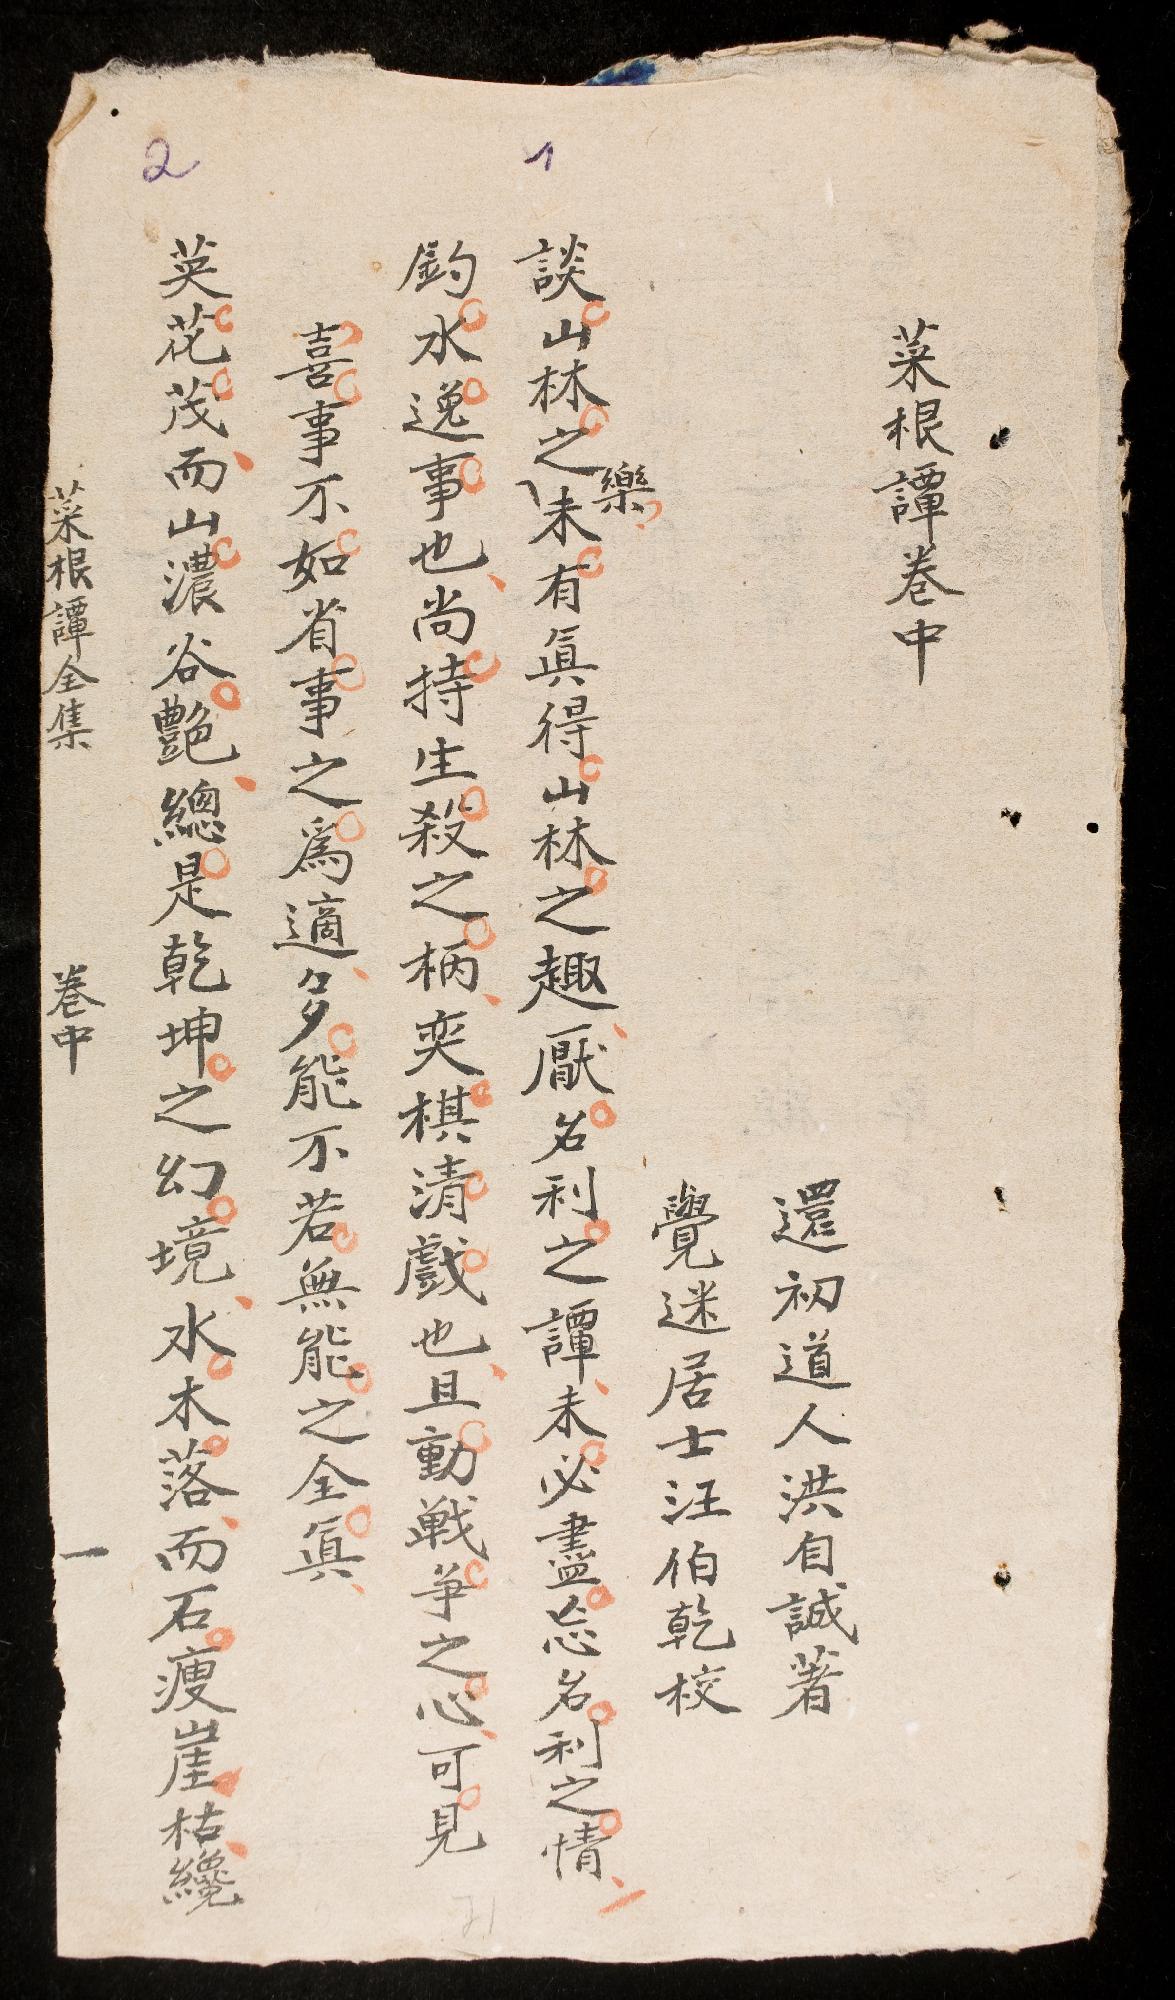 菜根譚巻中
還初道人洪自誠著
覺迷居士汪伯乾校
1
談山林之樂未有眞得山林之趣厭名利之譚未必盡忘名利之情
釣水逸事也尚持生殺之柄奕棋清戲也且動戦争之心可見
喜事不如省事之爲適多能不若無能之全眞
2
英花茂而山濃谷艶總是乾坤之幻境水木落而石痩崖枯纔
菜根譚全集 巻中 一